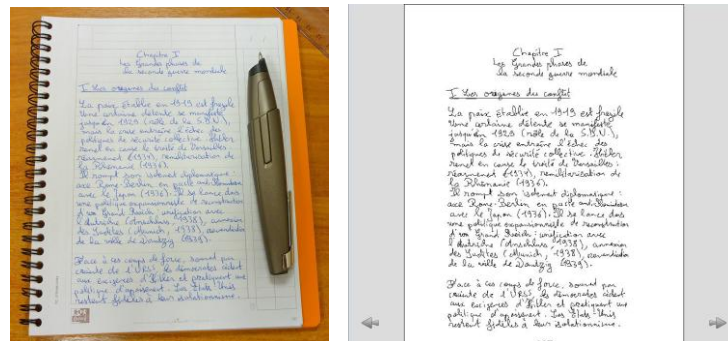 Chapitre I
Les Grandes phases de
la seconde guerre mondiale
I Les origines du conflit
La paix établie en 1919 est fragile
Une certaine détente se manifeste
jusqu'en 1929 (rôle de la S.D.N.),
mais la crise entraîne l'échec des
politiques de sécurité collective. Hitler
remet en cause le traité de Versailles :
réarmement (1934), remilitarisation de
la Rhénanie (1936).
Il rompt son isolement diplomatique :
axe Rome-Berlin en pacte
avec le Japon (1936). Il se lance dans
une politique expansionniste de reconstruction
d'un Grand Reich : unification avec
l'Autriche (Anschluss, 1938), annexion
des Sudètes (Munich, 1938), revendication
de la ville de Dantzig (1939).
Face à ces coups de force, souvent par
crainte de l'URSS, les démocraties cèdent
aux exigences d'Hitler et pratiquent une
politique d'apaisement. Les États-Unis
restent fidèles à leur isolationnisme.
Chapitre I
Les Grandes phases de
la seconde guerre mondiale
I Les origines du conflit
La paix établie en 1919 est fragile
Une certaine détente se manifeste
jusqu'en 1929 (rôle de la S.D.N.),
mais la crise entraîne l'échec des
politiques de sécurité collective. Hitler
remet en cause le traité de Versailles :
réarmement (1934), remilitarisation de
la Rhénanie (1936).
Il rompt son isolement diplomatique :
axe Rome-Berlin en pacte
avec le Japon (1936). Il se lance dans
une politique expansionniste de reconstruction
d'un Grand Reich : unification avec
l'Autriche (Anschluss, 1938), annexion
des Sudètes (Munich, 1938), revendication
de la ville de Dantzig (1939).
Face à ces coups de force, souvent par
crainte de l'URSS, les démocraties cèdent
aux exigences d'Hitler et pratiquent une
politique d'apaisement. Les États-Unis
restent fidèles à leur isolationnisme.